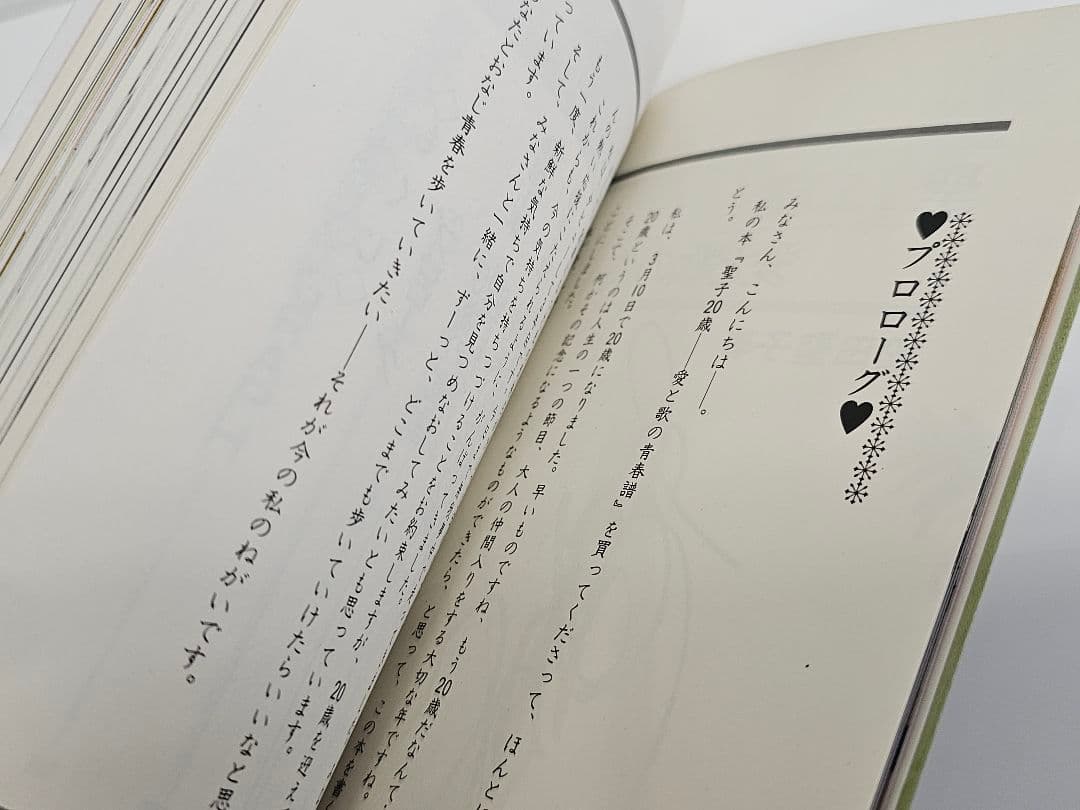 ♥プロローグ♥
みなさん、こんにちは――。
私の本『聖子20歳――愛と歌の青春譜』を買ってくださって、ほんと
どう。
私は、3月10日で20歳になりました。早いものですね、もう20歳だなんて
20歳というのは人生の一つの節目、大人の仲間入りをする大切な年ですね。
そこで、何かその記念になるようなものができたら、と思って、この本を書
ことにしました。
これからも、今の気持ちを持ちつづけることをお約束しますが、20歳を迎え
もう一度、新鮮な気持ちで自分を見つめなおしてみたいとも思っています。
そして、みなさんと一緒に、ずーっと、どこまでも歩いていけたらいいなと思
っています。
なたとおなじ青春を歩いていきたい――それが今の私のねがいです。